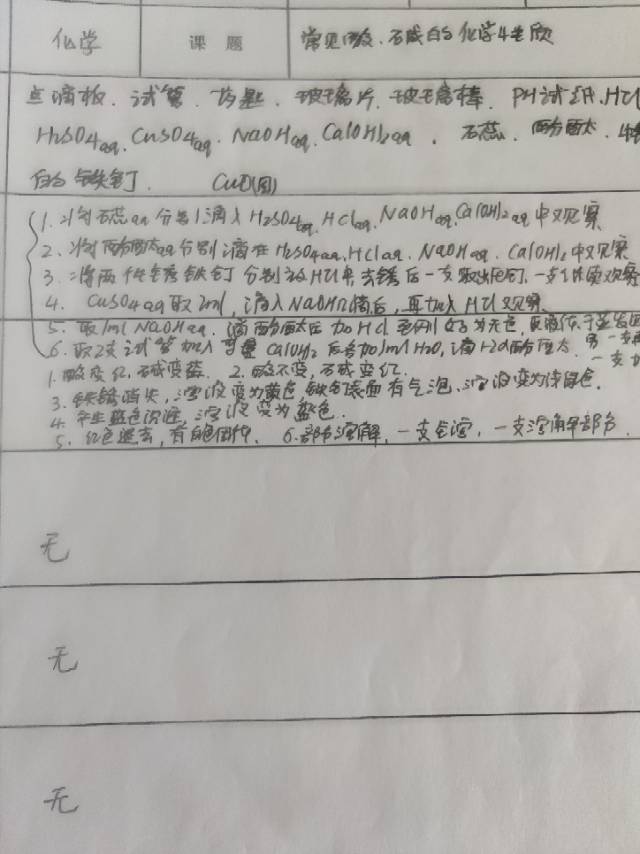 化学 课题 常见的酸、碱的化学性质
点滴板、试管、药匙、玻璃片、玻璃棒、PH试纸、HCl
H₂SO₄aq、CuSO₄aq、NaOHaq、Ca(OH)₂aq、石蕊、酚酞、
的铁钉、CuO(固)
1、将石蕊aq分别滴入H₂SO₄aq、HClaq、NaOHaq、Ca(OH)₂aq中观察
2、将酚酞aq分别滴在H₂SO₄aq、HClaq、NaOHaq、Ca(OH)₂中观察
3、将两个生锈铁钉分别放HCl中,去锈后一支取出铁钉,一支继续观察
4、CuSO₄aq取2ml,滴入NaOH滴后,再加入HCl观察
5、取1ml NaOHaq、滴酚酞后加HCl 为无色,
6、取2支试管加入Ca(OH)₂后各加1ml H₂O,滴1-2d酚酞、另一支
1、酸变红,碱变蓝、 2、酸不变,碱变红、 一支
3、铁锈消失,溶液变为黄色,铁钉表面有气泡、溶液变为浅绿色、
4、产生蓝色沉淀,溶液变为蓝色、
5、红色退去,有 6、部分溶解,一支全溶,一支溶解部分、
无
无
无